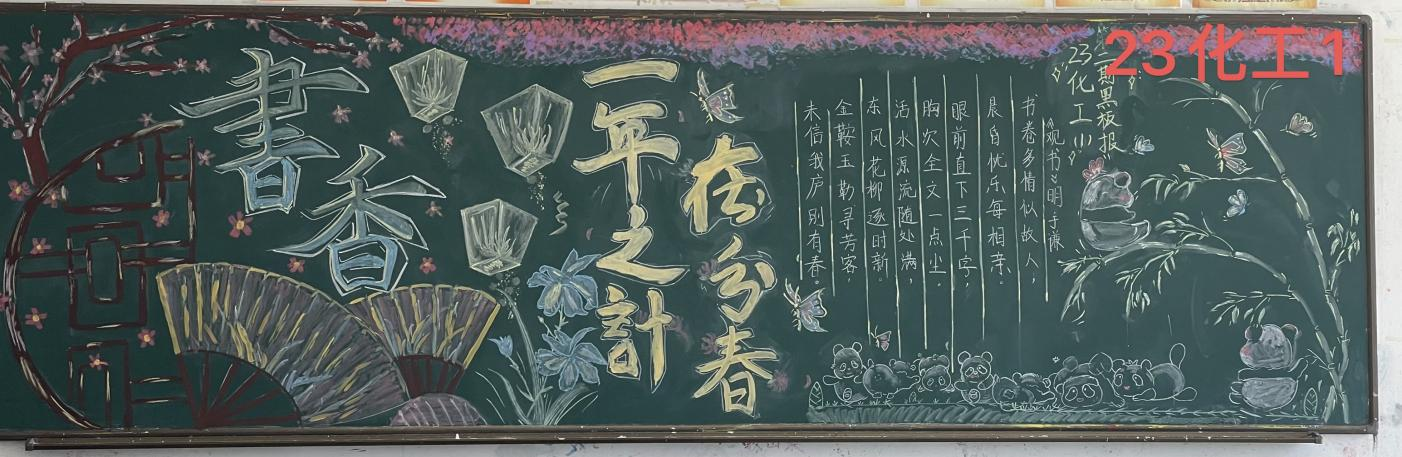 23化工1
書香
一年之計
在分春
二期黑板报
23化工(1)
《观书》明 于谦
书卷多情似故人，
晨昏忧乐每相亲。
眼前直下三千字，
胸次全无一点尘。
活水源流随处满，
东风花柳逐时新。
金鞍玉勒寻芳客，
未信我庐别有春。